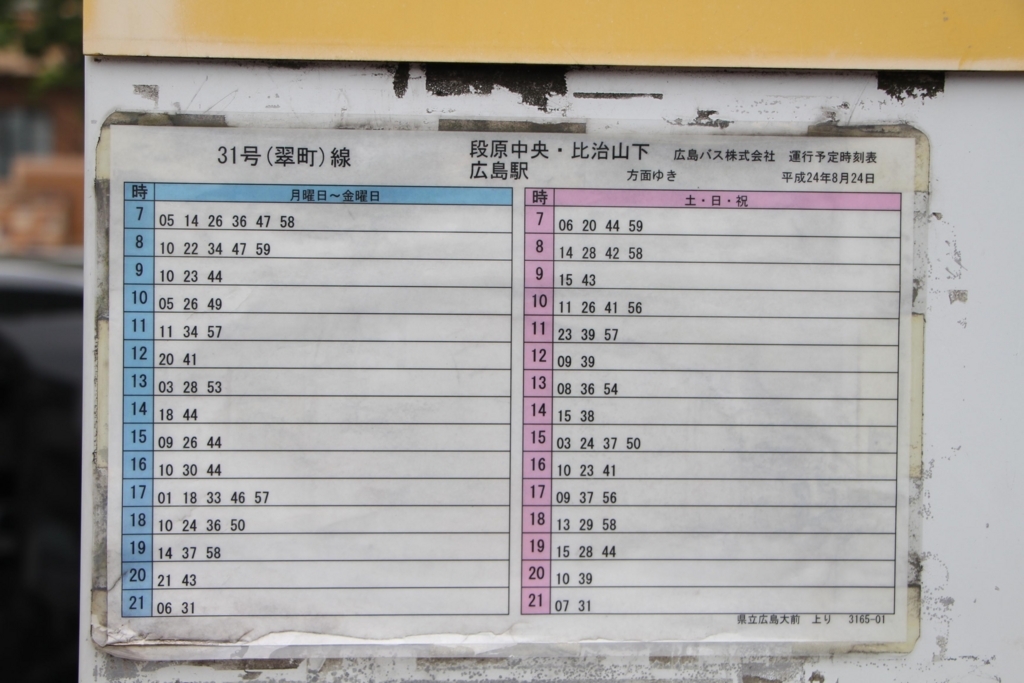 31号(翠町)線 段原中央・比治山下 広島バス株式会社 運行予定時刻表
広島駅 方面ゆき 平成24年8月24日
時 月曜日～金曜日
7 05 14 26 36 47 58
8 10 22 34 47 59
9 10 23 44
10 05 26 49
11 11 34 57
12 20 41
13 03 28 53
14 18 44
15 09 26 44
16 10 30 44
17 01 18 33 46 57
18 10 24 36 50
19 14 37 58
20 21 43
21 06 31
時 土・日・祝
7 06 20 44 59
8 14 28 42 58
9 15 43
10 11 26 41 56
11 23 39 57
12 09 39
13 08 36 54
14 15 38
15 03 24 37 50
16 10 23 41
17 09 37 56
18 13 29 58
19 15 28 44
20 10 39
21 07 31
県立広島大前 上り 3165-01